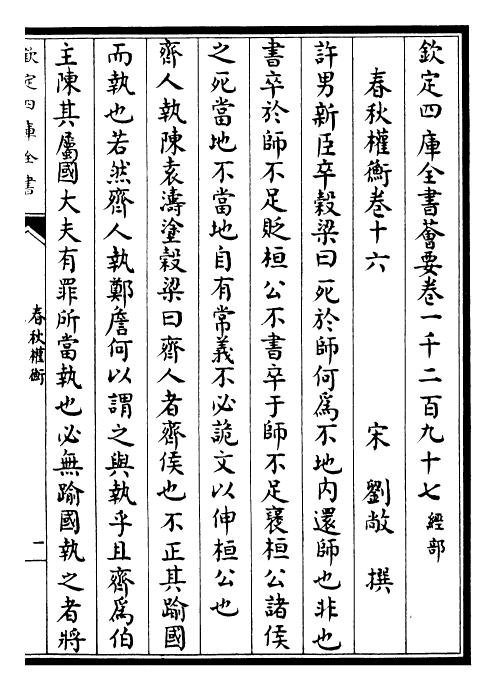 欽定四庫全書薈要卷一千二百九十七 經部
春秋權衡卷十六 宋 劉敞 撰
許男新臣卒穀梁曰死於師何為不地內還師也非也
書卒於師不足貶桓公不書卒于師不足襃桓公諸侯
之死當地不當地自有常義不必詭文以伸桓公也
齊人執陳袁濤塗穀梁曰齊人者齊侯也不正其踰國
而執也若然齊人執鄭詹何以謂之與執乎且齊為伯
主陳其屬國大夫有罪所當執也必無踰國執之者將
欽定四庫全書
春秋權衡
二